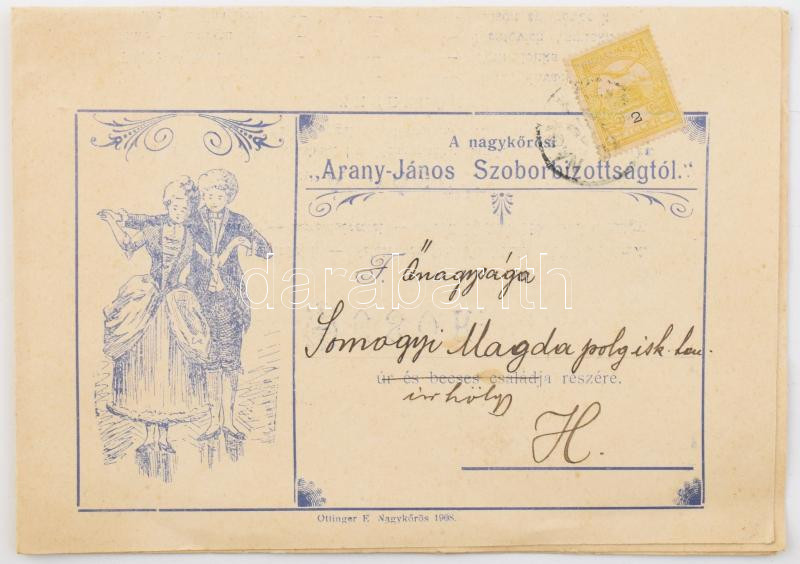 2
A nagykőrösi
„Arany-János Szoborbizottságtól."
F. Őnagysága
Somogyi Magda polg isk. tan.
úr és becses családja részére.
úrhölgy
H.
Ottinger E. Nagykőrös 1908.
darabanth